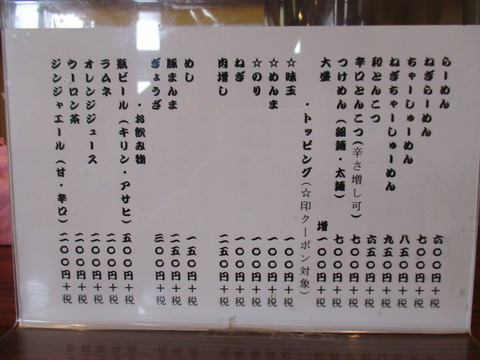 らーめん 六〇〇円+税
ねぎらーめん 七〇〇円+税
ちゃーしゅーめん 八五〇円+税
ねぎちゃーしゅーめん 九五〇円+税
和とんこつ 六五〇円+税
辛口とんこつ(辛さ増し可) 七〇〇円+税
つけめん(細麺・太麺) 七〇〇円+税
大盛 増 一〇〇円+税
・トッピング(☆印クーポン対象)
☆味玉 一〇〇円+税
☆めんま 一〇〇円+税
☆のり 一〇〇円+税
ねぎ 一〇〇円+税
肉増し 二五〇円+税
めし 一五〇円+税
豚まんま 二五〇円+税
ぎょうざ 三〇〇円+税
・お飲み物
瓶ビール(キリン・アサヒ) 五〇〇円+税
ラムネ 二〇〇円+税
オレンジジュース 二〇〇円+税
ウーロン茶 二〇〇円+税
ジンジャエール(甘・辛口) 二〇〇円+税